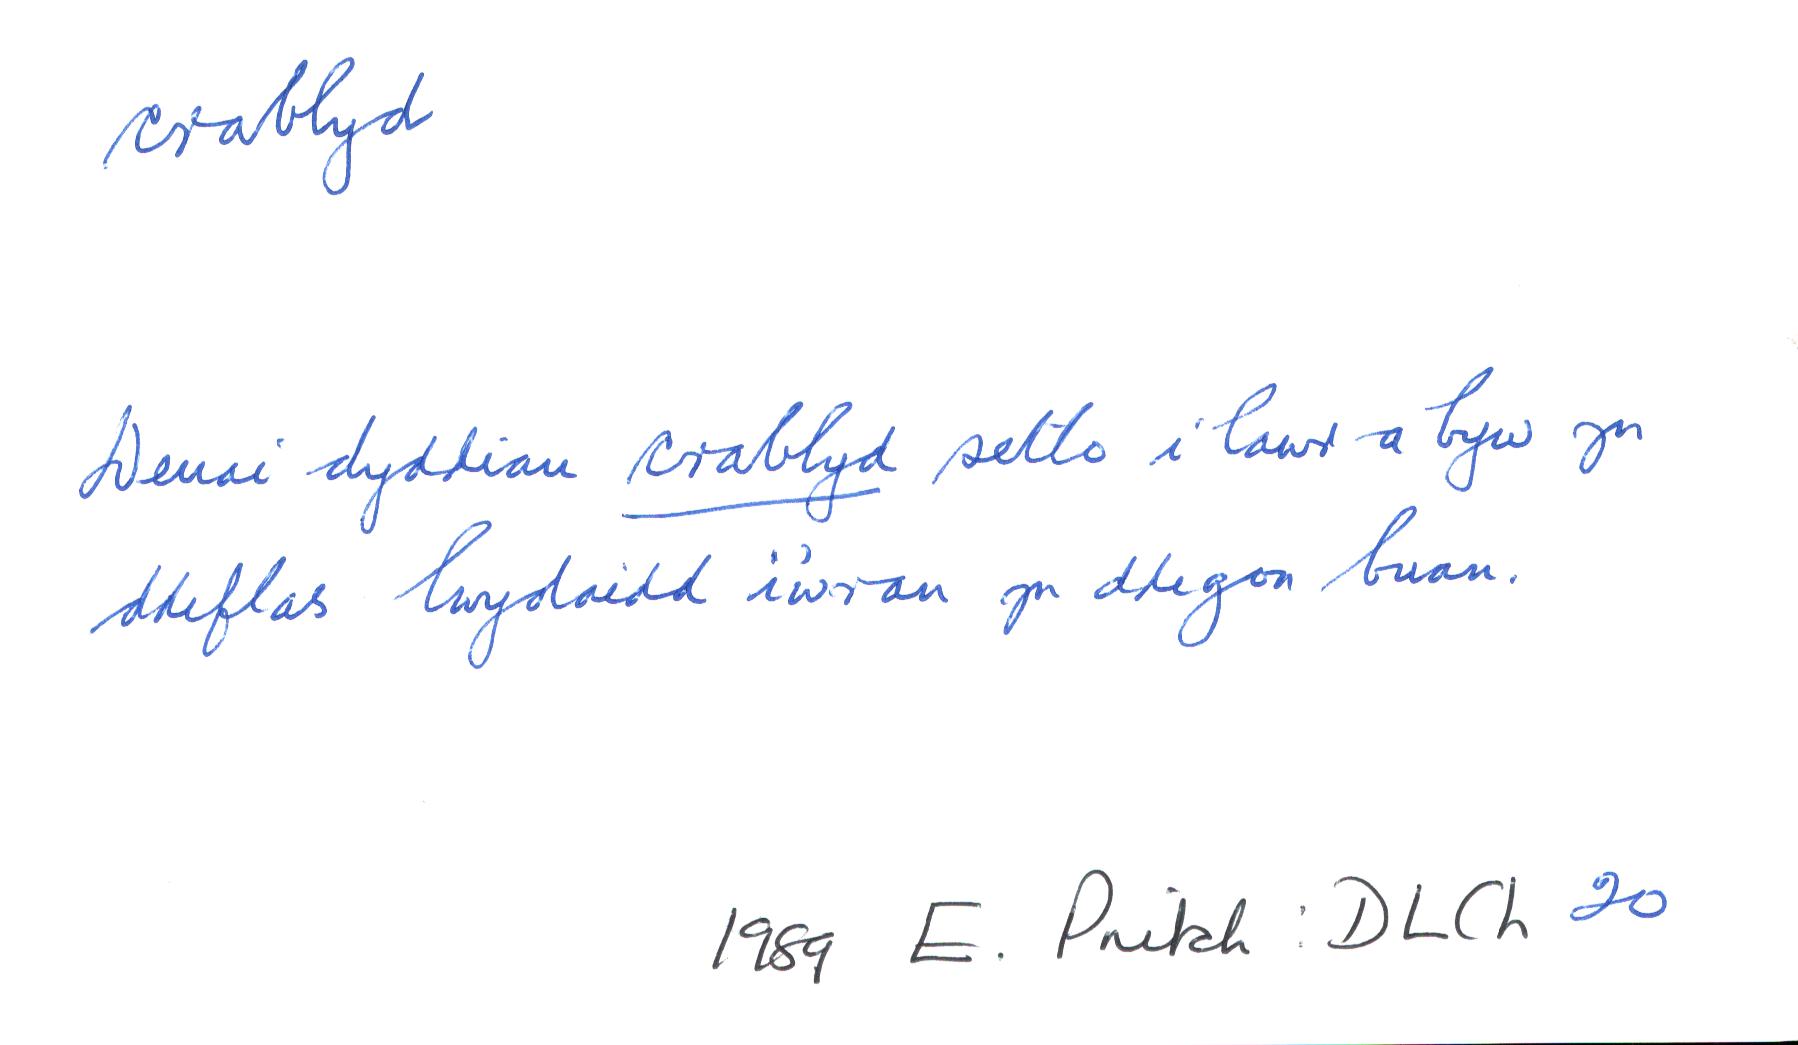 crablyd
Denai dyddiau crablyd setlo i lawr a byw yn
ddeflas lwydaidd iawn yn ddegon buan.
1989 E. Pritch: DLCh 20